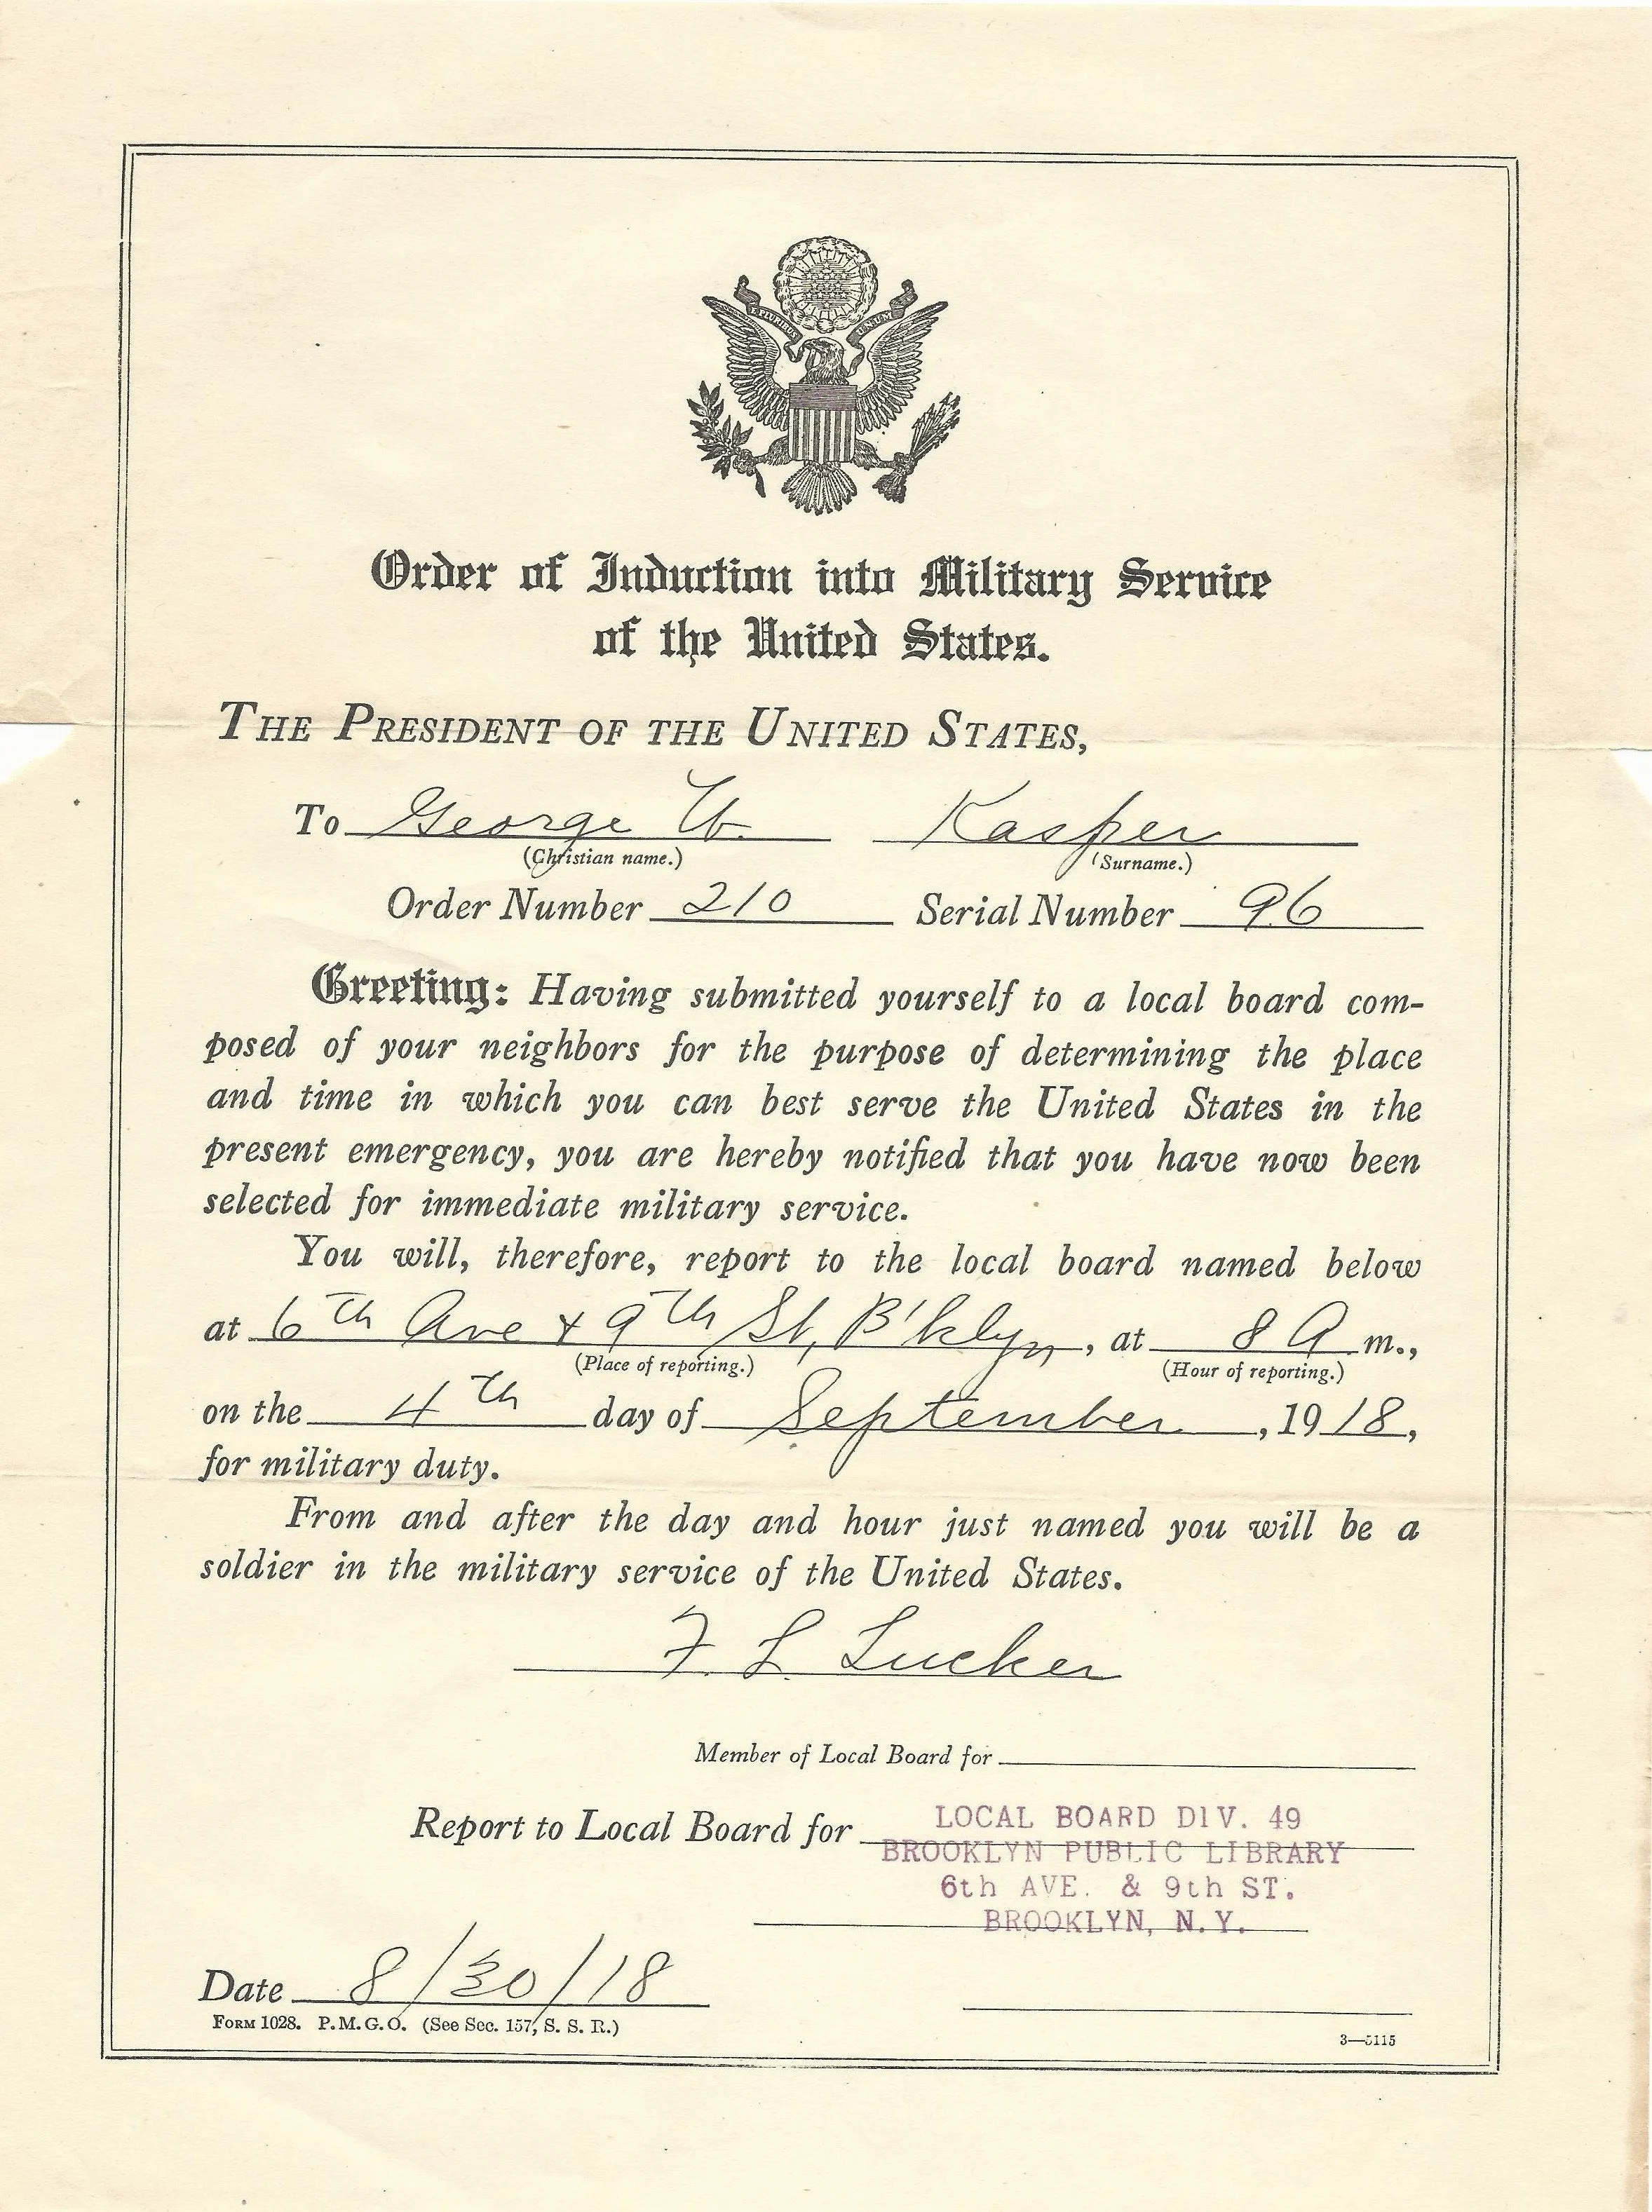 E PLURIBUS UNUM
Order of Induction into Military Service
of the United States.
THE PRESIDENT OF THE UNITED STATES,
To George W. Kasper
(Christian name.) (Surname.)
Order Number 210 Serial Number 96
Greeting: Having submitted yourself to a local board com-
posed of your neighbors for the purpose of determining the place
and time in which you can best serve the United States in the
present emergency, you are hereby notified that you have now been
selected for immediate military service.
You will, therefore, report to the local board named below
at 6th Ave & 9th St, B'klyn, at 8 A m.,
(Place of reporting.) (Hour of reporting.)
on the 4th day of September, 1918,
for military duty.
From and after the day and hour just named you will be a
soldier in the military service of the United States.
F. L. Lucker
Member of Local Board for
Report to Local Board for LOCAL BOARD DIV. 49
BROOKLYN PUBLIC LIBRARY
6th AVE. & 9th ST.
BROOKLYN, N.Y.
Date 8/30/18
FORM 1028. P.M.G.O. (See Sec. 157, S. S. R.)
3—5115